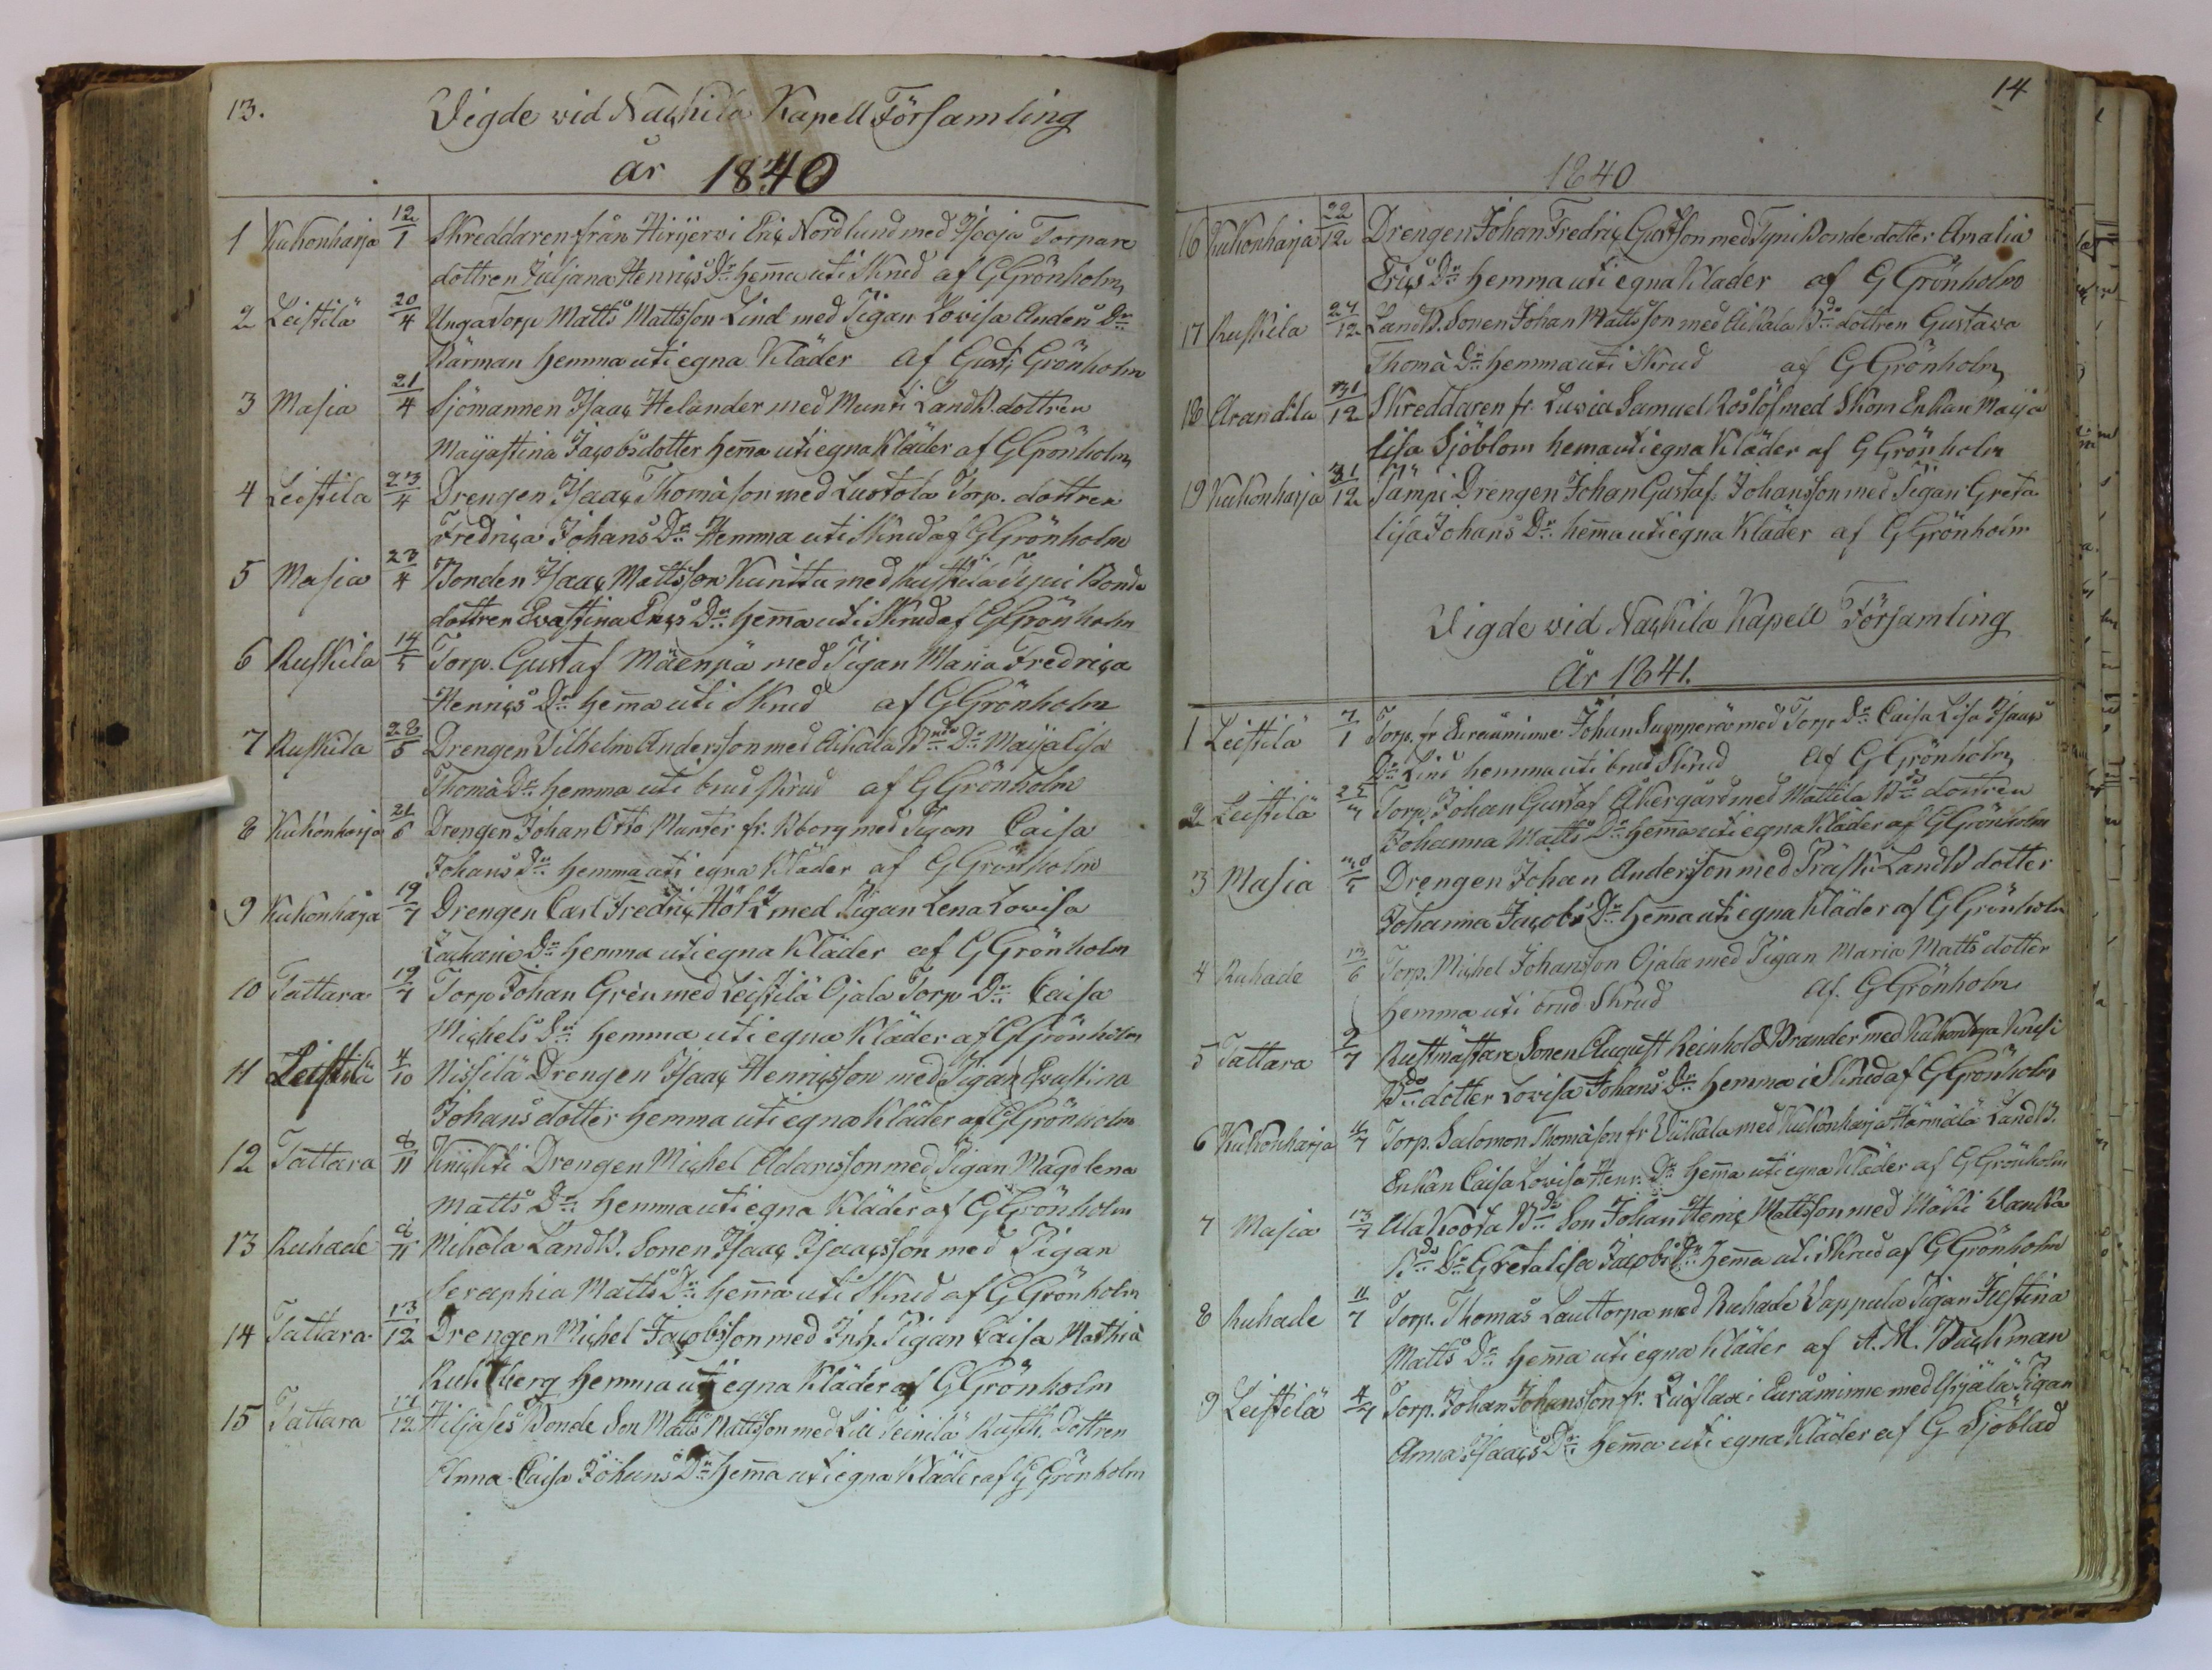 13.
Vigde vid Nackila Kapell Församling
år 1840
1 Kukonharja 12/1 Skreddaren från Hinjervi Eric Nordlund med Isoja Torpare
dottren Juljana Henrics Dr hemma uti Skrud af G Grönholm
2 Leistilä 20/4 Unga Torp Matts Mattsson Lind med Pigan Lovisa Anders Dr
Bärman hemma uti egna Kläder af Gust: Grönholm
3 Masia 21/4 Sjömannen Isaac Helander med Munti LandB. dottren
Majastina Jacobsdotter hema uti egna Kläder af G Grönholm
4 Leistila 23/4 Drengen Isaac Thomasson med Lustola Torp. dottren
Fredrica Johans Dr Hemma uti Skrud af G Grönholm
5 Masia 23/4 Bonden Isaac Mattsson Kunittu med Ruskila Bonde
dottren Evastina Erics Dr hema uti Skrud af G Grönholm
6 Ruskila 14/5 Torp. Gustaf Mäenpä med Pigan Maria Fredrica
Henrics Dr hema uti Skrud af G Grönholm
7 Ruskila 28/5 Drengen Vilhelm Andersson med Aikala Bnde Dr Majalisa
Thoma Dr hemma uti brudskrud af G Grönholm
8 Kukonharja 21/6 Drengen Johan Otto Munter fr. Bberg med Pigan Caisa
Johans Dr hemma uti egna Kläder af G Grönholm
9 Kukonharja 19/7 Drengen Carl Fredric med Pigan Lena Lovisa
Zacharie Dr hemma uti egna Kläder af G Grönholm
10 Tattara 19/7 Torp Johan Grén med Leistilä Ojala Torp Dr Caisa
Michels Dr hemma uti egna Kläder af G Grönholm
11 Leistilä 4/10 Nissilä Drengen Isaac Henricsson med Pigan Evastina
Johans dotter hemma uti egna Kläder af G Grönholm
12 Tattara 8/11 Knichti Drengen Michel Aldarisson med Pigan Magdlena
Matts Dr hemma uti egna Kläder af G Grönholm
13 Ruhade 8/11 Mikola LandB. Sonen Isaac Isaacsson med Pigan
Seraphia Matts Dr hema uti Skrud af G Grönholm
14 Tattara 13/12 Drengen Michel Jacobsson med Inh. Pigan Caisa Mathiä
Ruhtberg hemma uti egna Kläder af G Grönholm
15 Tattara /12 Hiljases Bonde Son Matts Mattsson med Teinilä Rusth. Dottren
Anna Caisa Johans Dr hema uti egna Kläder af G Grönholm
14
1840
16 Kukonharja 22/12 Drengen Johan Fredric Gustsson med Tyni Bonde dotter Amalia
Erics Dr hemma uti egna Kläder af G Grönholm
17 Ruskila 27/12 LandB. Sonen Johan Mattsson med Aikala Bde dottren Gustava
Thoma Dr hemma uti Skrud af G Grönholm
18 Arandila 31/12 Skreddaren fr. Luvia Samuel Roslöf med Skom Enkan Maija
lisa Sjöblom hema uti egna Kläder af G Grönholm
19 Kukonharja 31/12 Tampi Drengen Johan Gustaf Johansson med Pigan Greta
lisa Johans Dr hema uti egna Kläder af G Grönholm
Vigde vid Nackila Kapell Församling
År 1841.
1 Leistilä 7/1 Torp. fr Euraåminne Johan Sumperä med Torp Dr Caisa Lisa Isaacs
Dr Lind hemma uti brud Skrud af G Grönholm
2 Leistilä Torp. Johan Gustaf Åkergård med Mattila Bde dottren
Johanna Matts Dr hema uti egna Kläder af G Grönholm
3 Masia Drengen Johan Andersson med Präski LandB dotter
Johanna Jacobs Dr hema uti egna Kläder af G Grönholm
4 Ruhade 13/6 Torp. Michel Johansson Ojala med Pigan Maria Matts dotter
hemma uti brud Skrud af. G Grönholm
5 Tattara 2/7 Rustmästare Sonen August Reinhold Brander med Kukonharja
Bde dotter Lovisa Johans Dr hemma i Skrud af G Grönholm
6 Kukonharja 4/7 Torp. Salomon Thomasson fr Viikala med Kukonharja Härmälä LandB.
Enkan Caisa Lovisa Henr: Dr hema uti egna Kläder af G Grönholm
7 Masia 13/7 Ala Voosta Bde Son Johan Henric Mattsson med
Bde Dr Gretalisa Jacobs Dr hema uti Skrud af G Grönholm
8 Ruhade 11/7 Torp. Thomas Lauttorpa med Ruhade Vappula Pigan Justina
Matts Dr hema uti egna Kläder af A. M. Backman
9 Leistilä 4/7 Torp. Johan Johansson fr. Euraåminne med Pigan
Anna Isaacs Dr hema uti egna Kläder af G Sjöblad